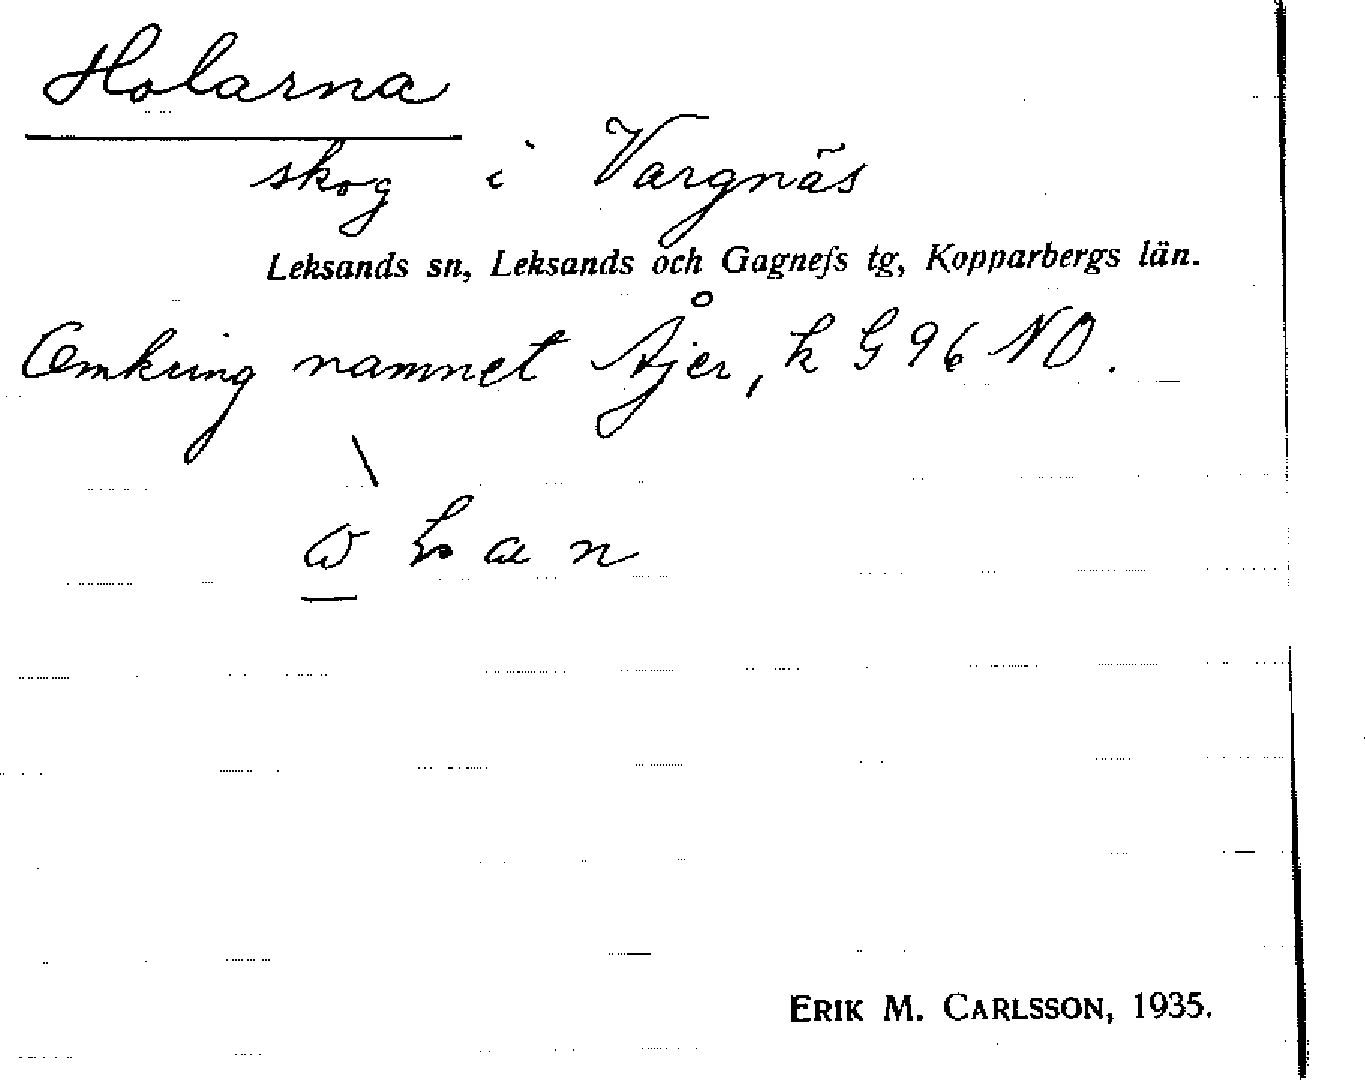 Holarna
skog i Vargnäs
Leksands sn, Leksands och Gagnefs tg, Kopparbergs län.
Omkring namnet Åjer, k G 96 NO.
an
ERIK M. CARLSSON, 1935.